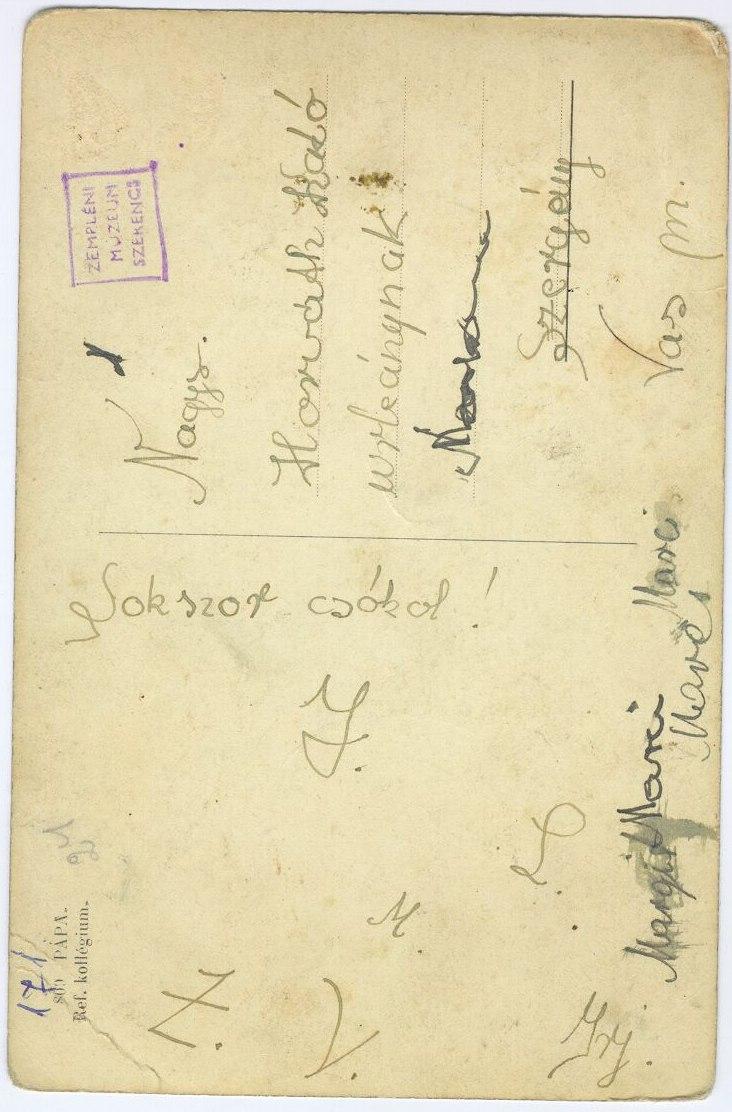 ZEMPLÉNI
MÚZEUM
SZERENCS
Nagys.
Horváth Kató
urleánynak
Szergény
Vas m.
Sokszor csókol!
M.
Irj.
Margit Marci Marci
Marci
171
PÁPA.
Ref. kollégium.